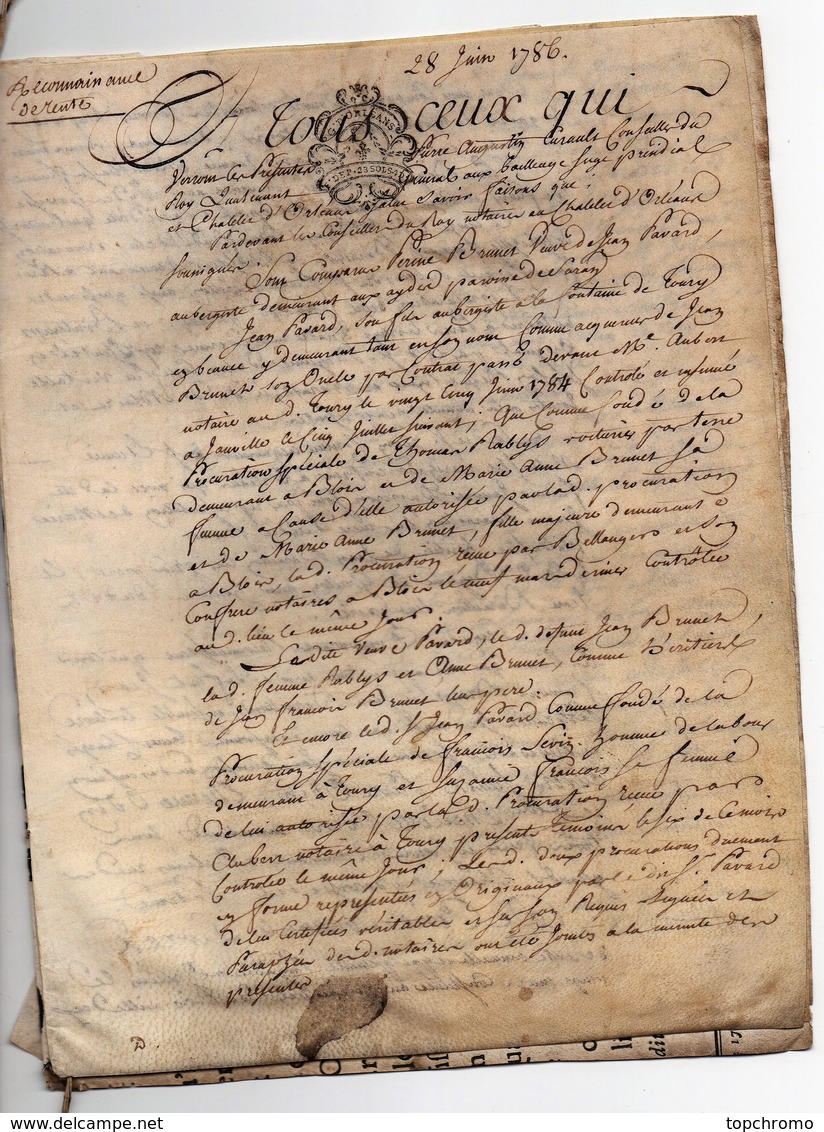 28 Juin 1786.
Reconnoissance
de rente
A tous ceux qui
Verront ces Presentes Pierre Augustin Curault Conseiller du
Roy Lieutenant General aux bailliage Siege presidial
et Chatelet d'Orleans Salut Savoir faisons que;
Pardevant les Conseillers du Roy notaires au Chatelet d'Orleans
soussignés;
Sont Comparus Perine Brunet Veuve de Jean Pavard,
aubergiste demeurant aux aydes paroisse de Saran
Jean Pavard, son fils aubergiste à la fontaine de Toury
en beauce y demeurant tant en son nom Comme acquereur de Jean
Brunet son Oncle par Contrat passé devant Me. Aubert
notaire au d. Toury le vingt Cinq Juin 1784 Controlé et insinué
a Janville le Cinq Juillet suivant; que Comme fondé de la
Procuration Spéciale de Thomas Rablys voiturier par terre
demeurant a Blois et de Marie Anne Brunet sa
femme a Cause d'elle autorisée par la d. procuration
et de Marie Anne Brunet, fille majeure demeurant
a Blois, la d. Procuration reçue par Bellanger et son
Confrere notaires a Blois le neuf mars dernier Contrôlée
au d. lieu le même Jour.
La dite Veuve Pavard, le d. defunt Jean Brunet,
la d. femme Rablys et Anne Brunet, Comme héritiers
de Jean François Brunet leur pere.
Et encore le d. S. Jean Pavard Comme fondé de la
Procuration Spéciale de François Sevin homme de labour
demeurant à Toury et Suzanne François sa femme
de lui autorisée par la d. Procuration reçue par
Aubert notaire à Toury presents temoins le six de Ce mois
Contrôlée le même Jour; Les d. deux procurations duement
en forme representés en Originaux par le dit Sr. Pavard
de lui Certifiés véritables et sur son Requis Signées et
Paraphées des d. notaires ont été Joints à la minute des
presentes
ORLEANS
DEP. 23 SOLS
topchromo